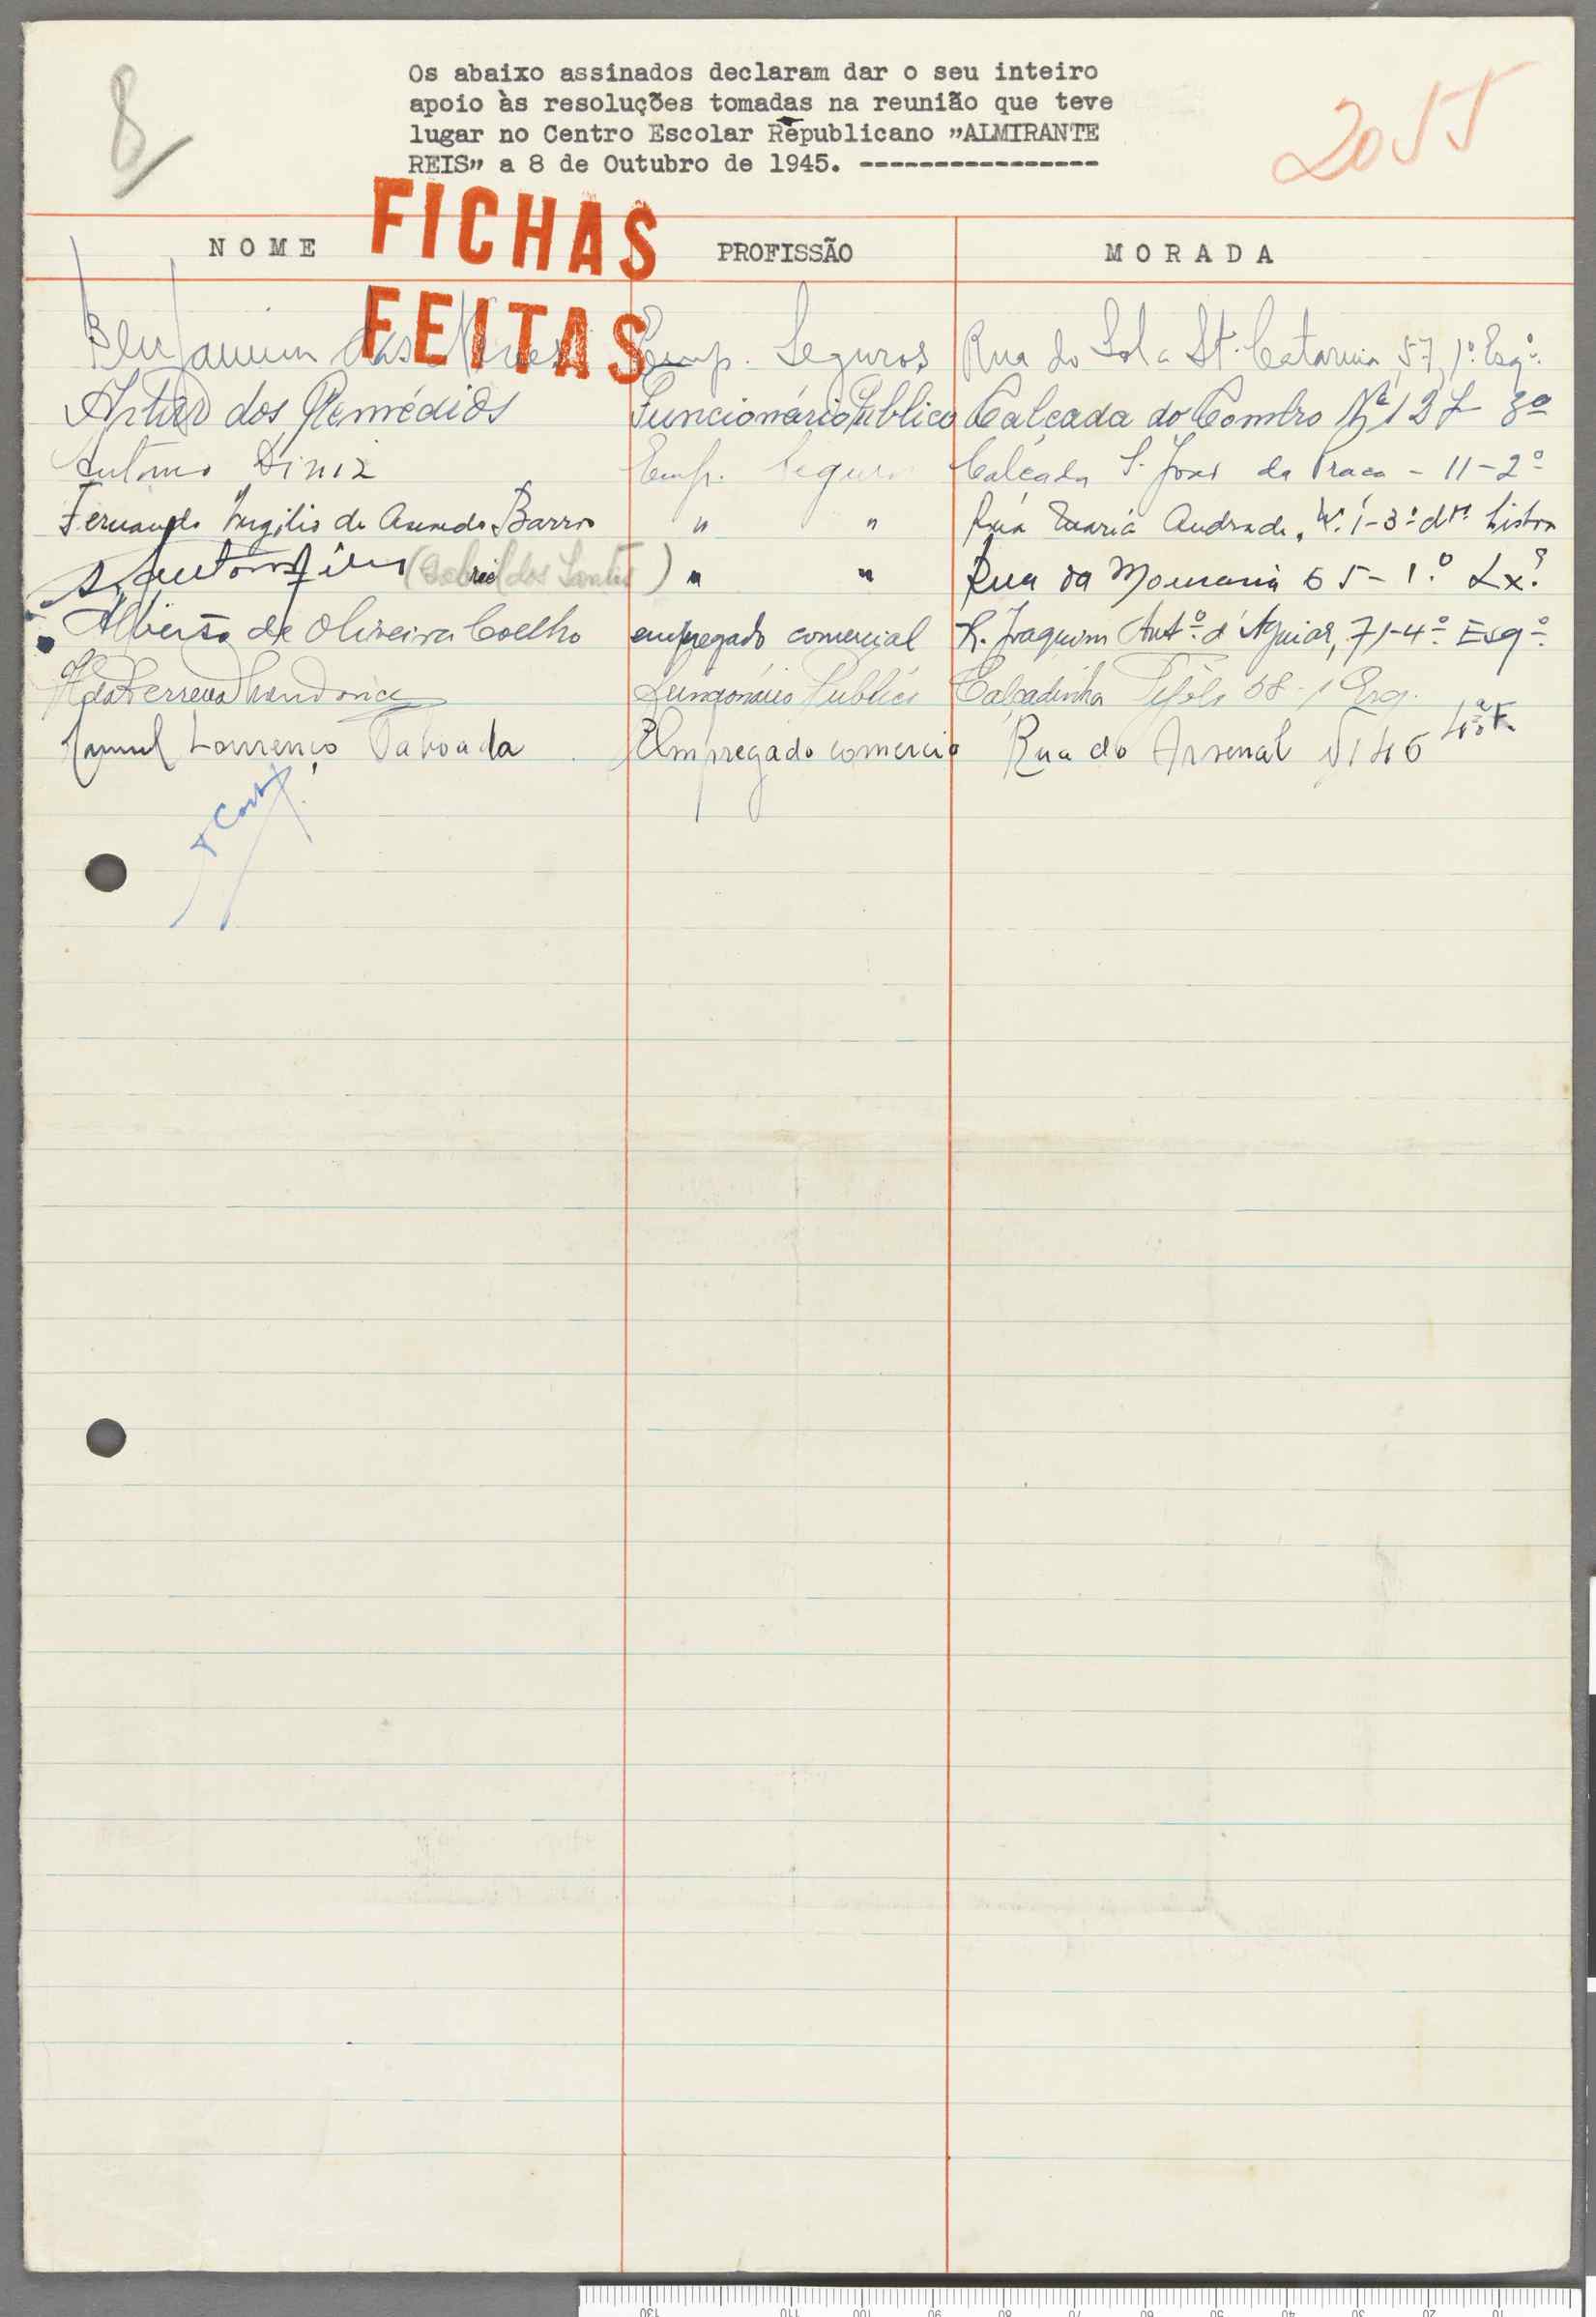 8
2055
Os abaixo assinados declaram dar o seu inteiro
apoio às resoluções tomadas na reunião que teve
lugar no Centro Escolar Republicano "ALMIRANTE
REIS" a 8 de Outubro de 1945. ----------------
FICHAS
FEITAS
NOME PROFISSÃO MORADA
Benjamim das Neves Emp. Seguros Rua do Sol a St. Catarina, 57, 1º Esqº.
Artur dos Remédios Funcionário Público Calçada do Combro Nº 127 3º
António Diniz Emp. Seguros Calçada S. João da Praça - 11-2º
Fernando Virgilio de Azevedo Barros " " Rua Maria Andrade, Nº 1-3º dtº Lisboa
(Gabriel dos Santos) " " Rua da Mouraria 65-1.º Lxª
Alberto de Oliveira Coelho empregado comercial R. Joaquim Antº. d'Aguiar, 71-4º Esqº.
Ferreira Mendonça Funcionário Publico Calçadinha Tijolo 58-1 Esq.
Manuel Lourenço Taboada Empregado comercio Rua do Arsenal Nº 146 4º
Costa